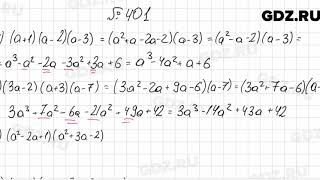 GDZ.RU
№ 401
) (a+1)(a-2)(a-3) = (a²+a-2a-2)(a-3) = (a²-a-2)(a-3) =
= a³-a²-2a-3a²+3a+6 = a³-4a²+a+6
)(3a-2)(a+3)(a-7) = (3a²-2a+9a-6)(a-7) = (3a²+7a-6)(a-
3a³+7a²-6a-21a²+49a+42 = 3a³-14a²+43a+42
) (a²-2a+1)(a²+3a-2)